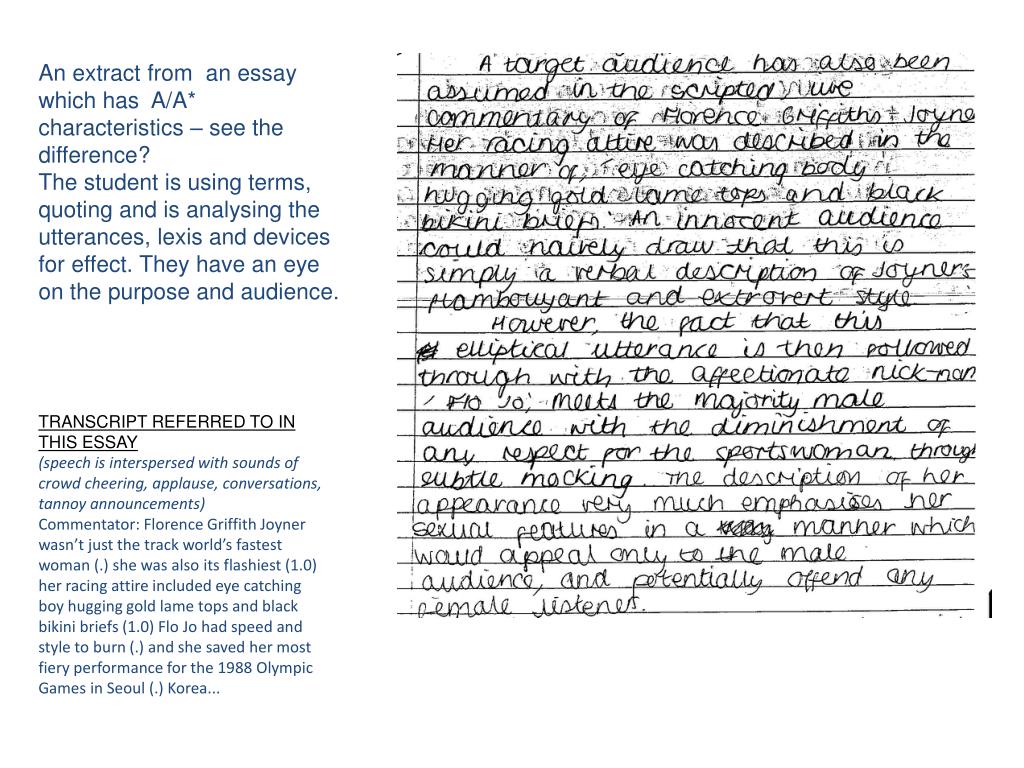 An extract from an essay
which has A/A*
characteristics – see the
difference?
The student is using terms,
quoting and is analysing the
utterances, lexis and devices
for effect. They have an eye
on the purpose and audience.
TRANSCRIPT REFERRED TO IN
THIS ESSAY
(speech is interspersed with sounds of
crowd cheering, applause, conversations,
tannoy announcements)
Commentator: Florence Griffith Joyner
wasn't just the track world's fastest
woman (.) she was also its flashiest (1.0)
her racing attire included eye catching
boy hugging gold lame tops and black
bikini briefs (1.0) Flo Jo had speed and
style to burn (.) and she saved her most
fiery performance for the 1988 Olympic
Games in Seoul (.) Korea...
A target audience has also been
assumed in the scripted live
commentary of Florence Griffiths Joyne
Her racing attire was described in the
manner of, 'eye catching body
hugging gold lame tops and black
bikini briefs.' An innocent audience
could naively draw that this is
simply a verbal description of Joyner's
flambouyant and extrovert style
However, the fact that this
elliptical utterance is then followed
through with the affectionate nick-nam
'Flo Jo', meets the majority male
audience with the diminishment of
any respect for the sportswoman through
subtle mocking. The description of her
appearance very much emphasises her
sexual features in a manner which
would appeal only to the male
audience, and potentially offend any
female listener.